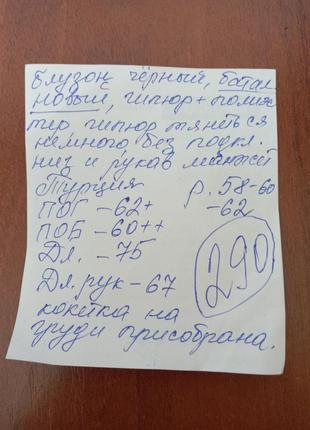 Блузон чёрный, батал
новый, гипюр + полиэс
тер гипюр тянеться
немного без подкл.
низ и рукав манжет
Турция р. 58-60
ПОГ -62+ -62
ПОБ -60++
Дл. -75 290
Дл. рук -67
кокетка на
груди присобрана.